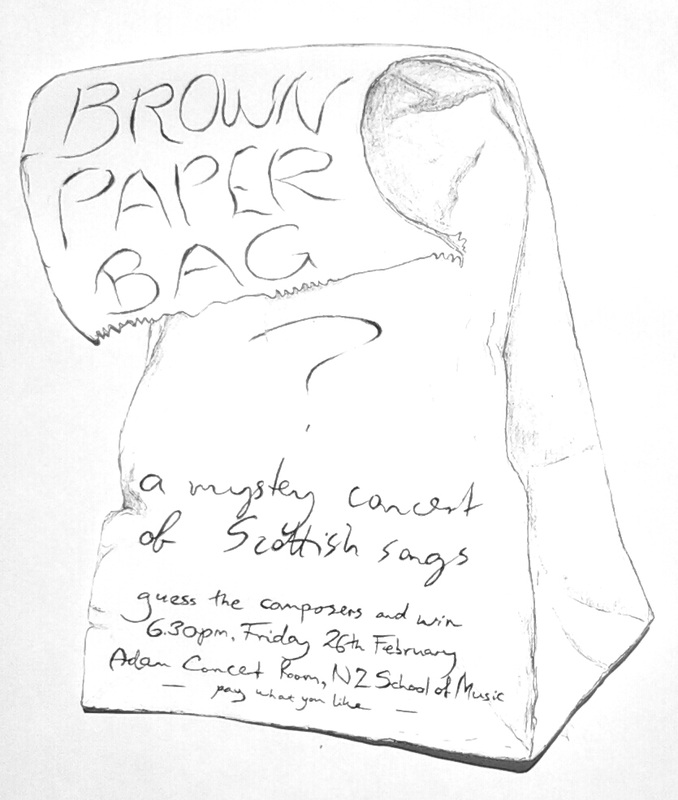 BROWN
PAPER
BAG
?
a mystery concert
of Scottish songs
guess the composers and win
6.30pm, Friday 26th February
Adam Concert Room, NZ School of Music
— pay what you like —